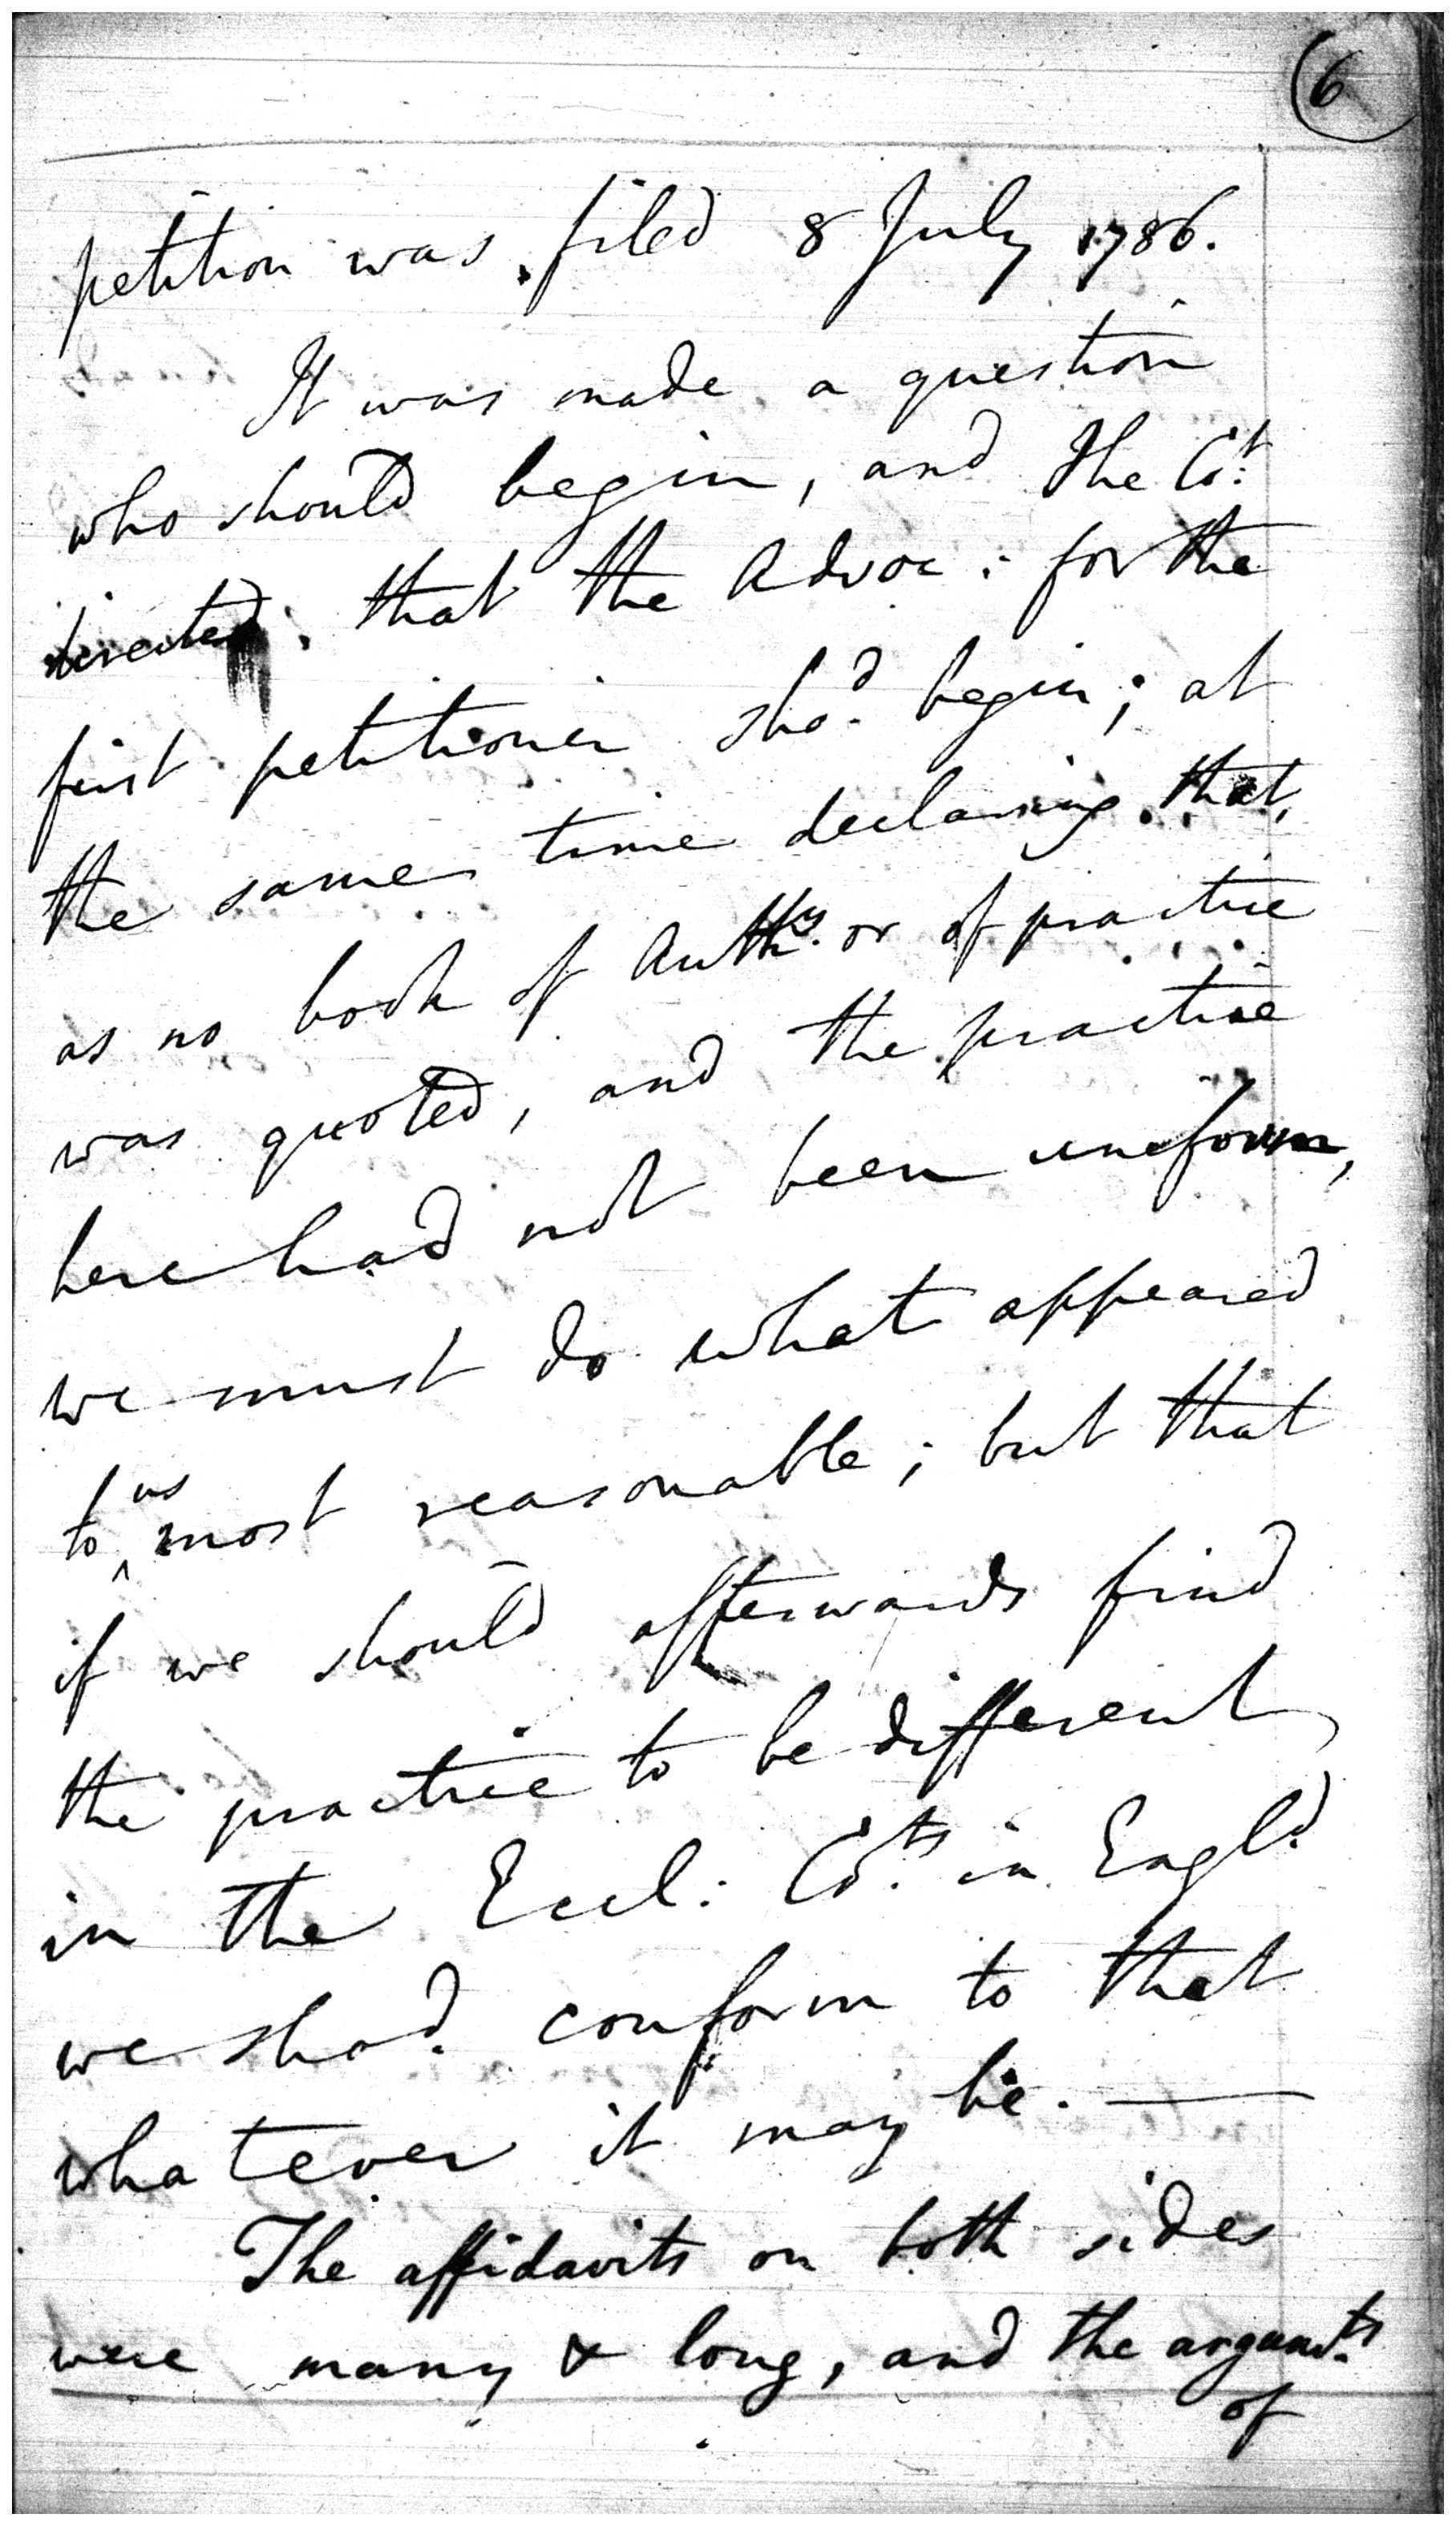 6
petition was filed 8 July 1786.
It was made a question
who should begin, and the Cot.
directed that the Advoc: for the
first petitioner shod. begin; at
the same time declaring that,
as no book of Authy. or of practice
was quoted, and the practice
here had not been uniform,
we must do what appeared
to us most reasonable; but that
if we should afterwards find
the practice to be different
in the Eccl: Cots. in Engld.
we shod. conform to that
whatever it may be. —
The affidavits on both sides
were many & long, and the argumts.
of